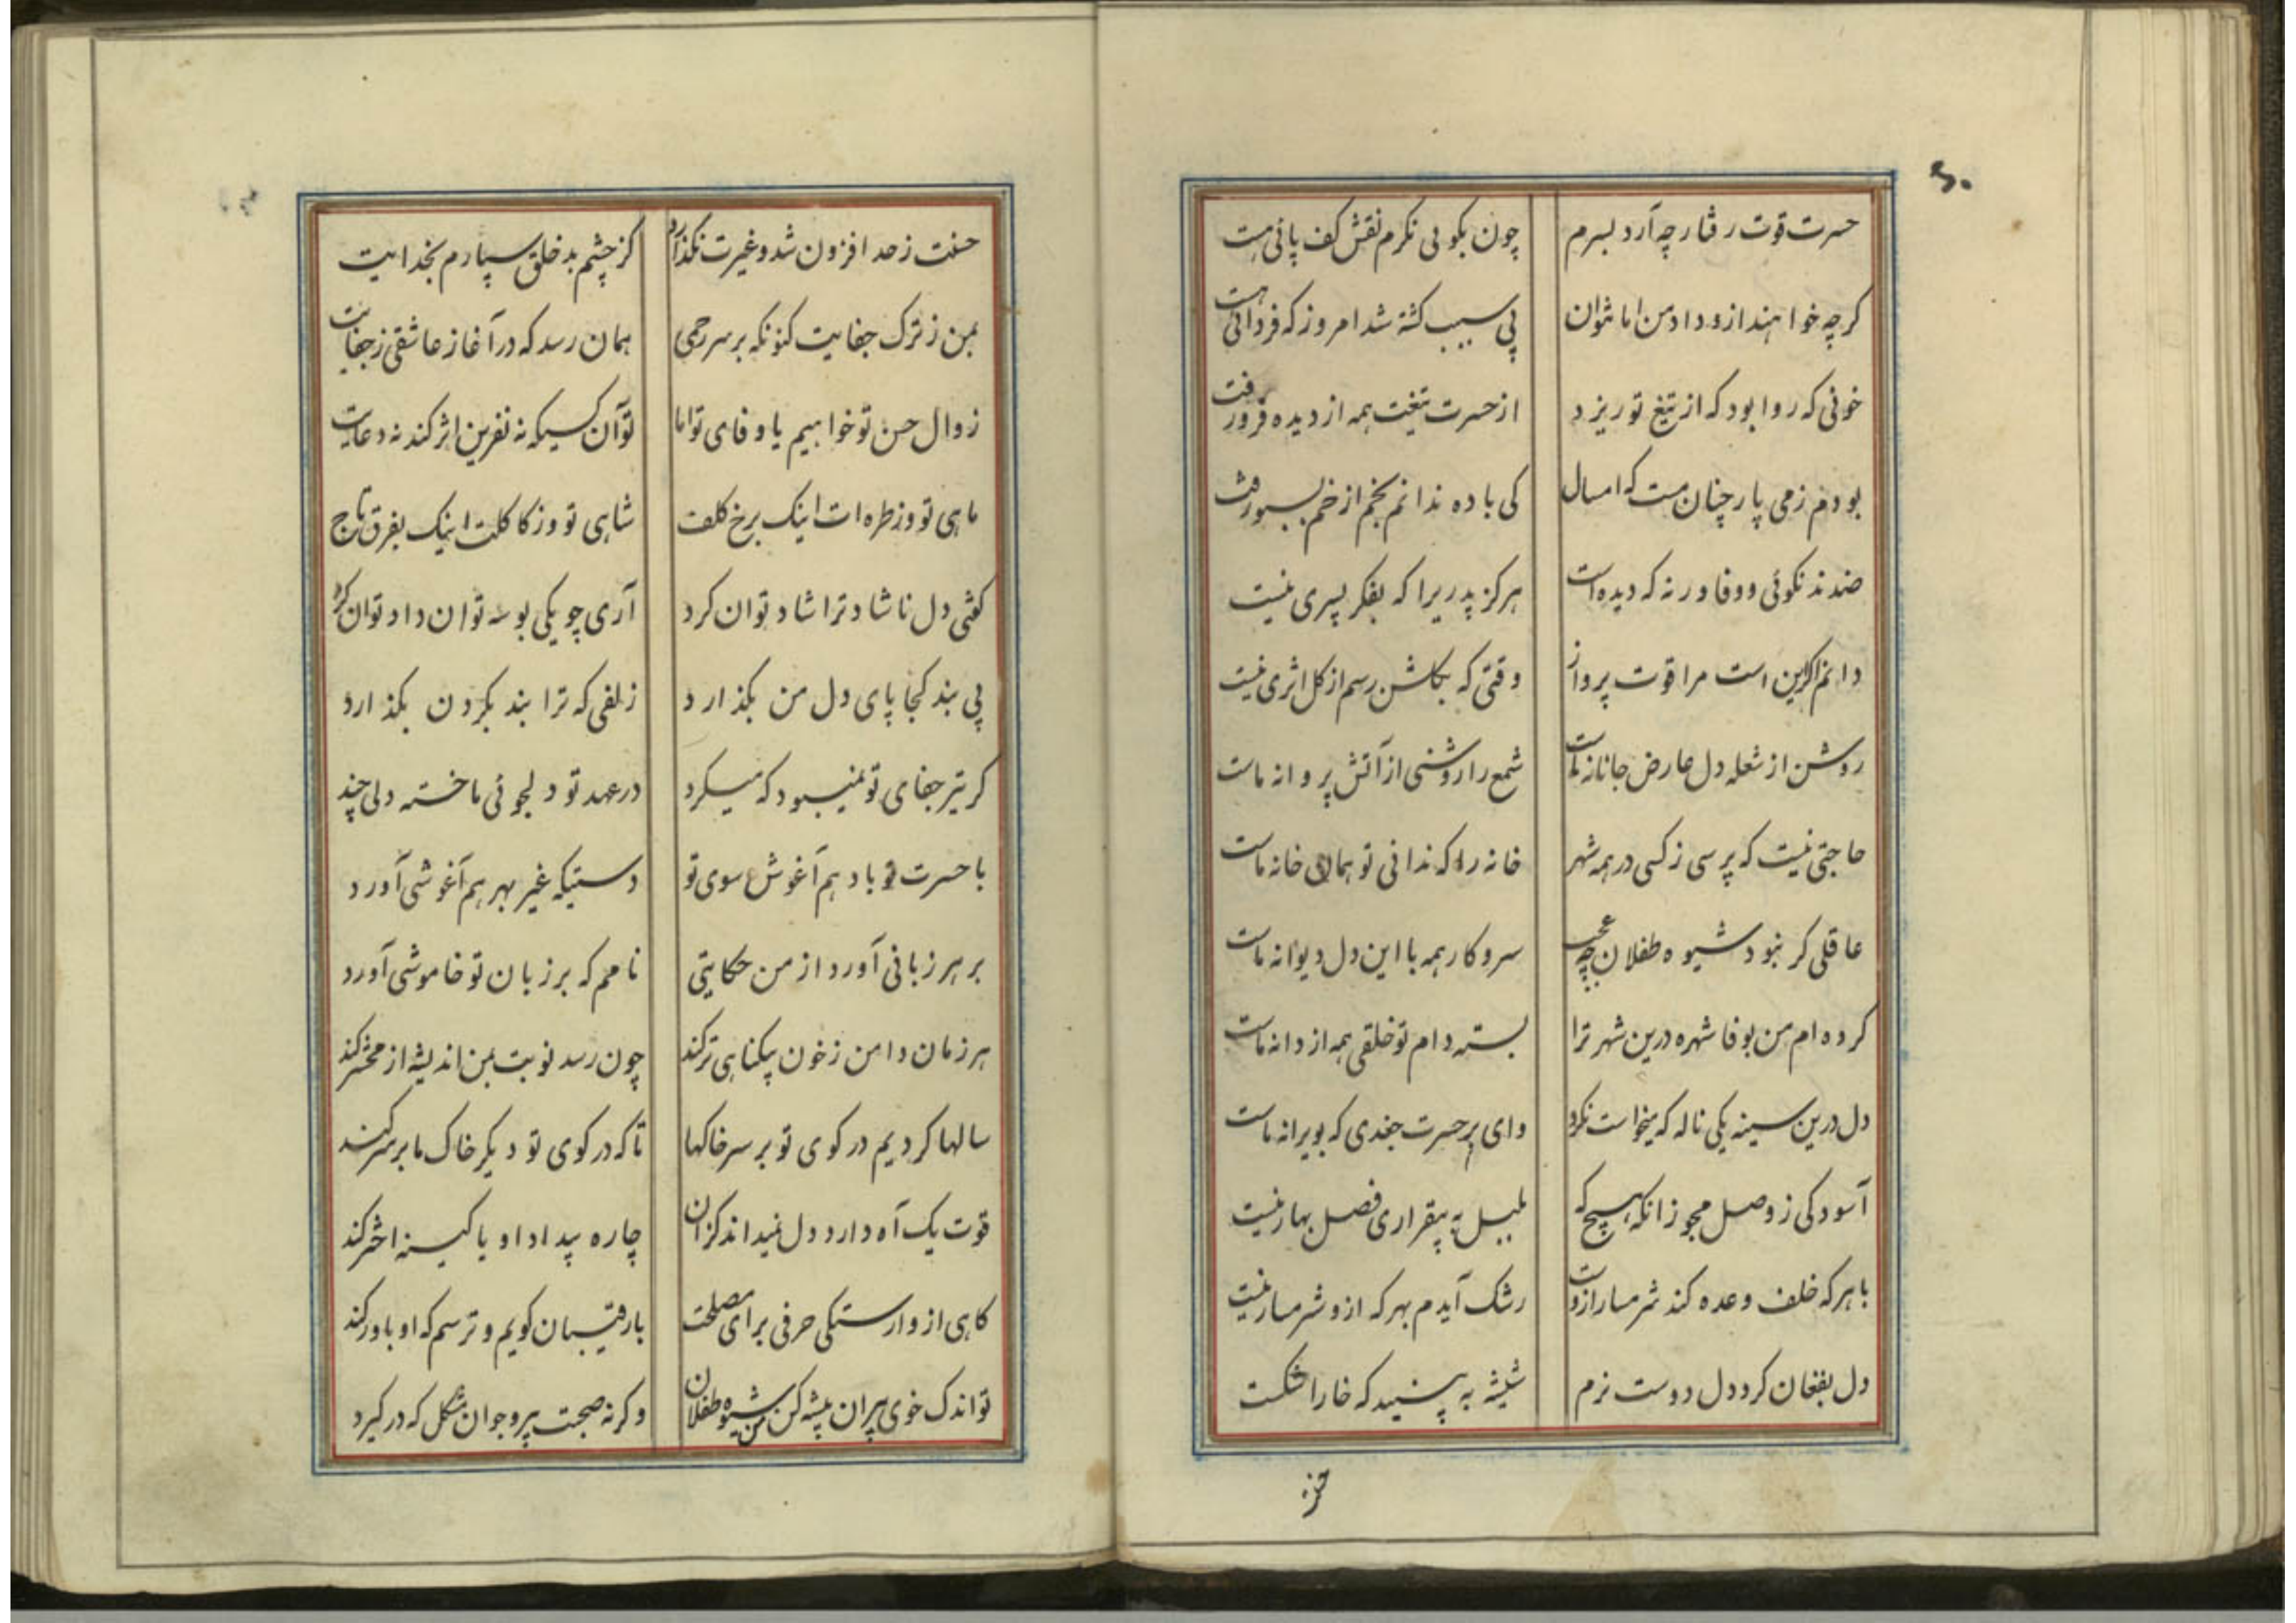 ۶۰
حسرت قوت رفتار چه آرد بسرم چون بکوئی نکرم نقش کف پائی هست
کرچه خواهند ازو داد من اما نتوان بی سبب کشته شد امروز که فردائی هست
خونی که روا بود که از تیغ تو ریزد از حسرت تیغت همه از دیده فرو رفت
بودم ز می پار چنان مست که امسال کی باده ندانم بخم از خم بسبو رفت
ضدند نکوئی و وفا ورنه که دیده است هرکز پدریرا که بفکر پسری نیست
دانم اکر این است مرا قوت پرواز وقتی که بکلشن رسم از کل اثری نیست
روشن از شعله دل عارض جانانه ماست شمع را روشنی از آتش پروانه ماست
حاجتی نیست که پرسی ز کسی در همه شهر خانه را که ندانی تو همان خانه ماست
عاقلی کر نبود شیوه طفلان چه عجب سر و کار همه با این دل دیوانه ماست
کرده ام من بوفا شهره درین شهر ترا بسته دام تو خلقی همه از دانه ماست
دل درین سینه یکی ناله که میخواست نکرد وای بر حسرت جغدی که بویرانه ماست
آسودکی ز وصل مجو زانکه هیچ که بلبل به بیقراری فصل بهار نیست
با هر که خلف وعده کند شرمسار ازوست رشک آیدم بهر که ازو شرمسار نیست
دل بفغان کرد دل دوست نرم شیشه به بینید که خارا شکست
حسنت ز حد افزون شد و غیرت نکذارد کز چشم بد خلق سپارم بخدایت
بمن ز ترک جفایت کنونکه بر سر رحمی همان رسد که در آغاز عاشقی ز جفایت
زوال حسن تو خواهیم یا وفای تو اما تو آن کسیکه نه نفرین اثر کند نه دعایت
ماهی تو وز طره ات اینک برخ کلف شاهی تو وز کاکلت اینک بفرق تاج
کفتی دل ناشاد ترا شاد توان کرد آری چو یکی بوسه توان داد توان کرد
بی بند کجا پای دل من بکذارد زلفی که ترا بند بکردن بکذارد
کر تیر جفای تو نمیبود که میکرد در عهد تو دلجوئی ما خسته دلی چند
با حسرت تو باد هم آغوش سوی تو دستیکه غیر بهر هم آغوشی آورد
بر هر زبانی آورد از من حکایتی نامم که بر زبان تو خاموشی آورد
هر زمان دامن ز خون بیکناهی تر کند چون رسد نوبت بمن اندیشه از محشر کند
سالها کردیم در کوی تو بر سر خاکها تا که در کوی تو دیکر خاک ما بر سر کند
قوت یک آه دارد دل نمیداند کزان چاره بیداد او یا کینه اختر کند
کاهی از وارستکی حرفی برای مصلحت با رقیبان کویم و ترسم که او باور کند
تو اندک خوی پیران پیشه کن من شیوه طفلان وکرنه صحبت پیر و جوان مشکل که در کیرد